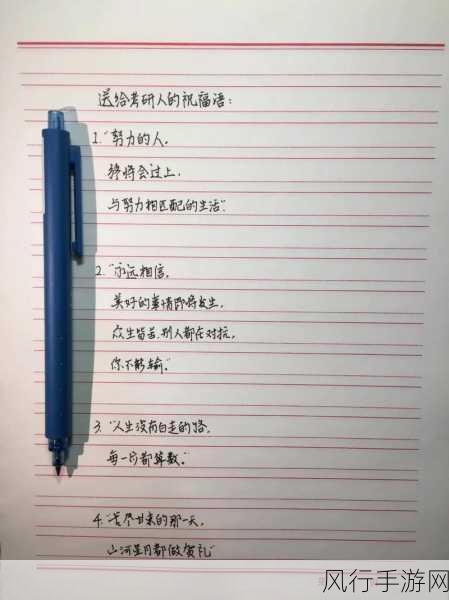 送给考研人的祝福语：
1."努力的人，
终将会过上，
与努力相匹配的生活".
2."永远相信，
美好的事情即将发生，
众生皆苦，别人都在对抗，
你不能输。"
3."人生没有白走的路，
每一步都算数。"
4."苦尽甘来的那一天，
山河星月都做贺礼"
风行手游网